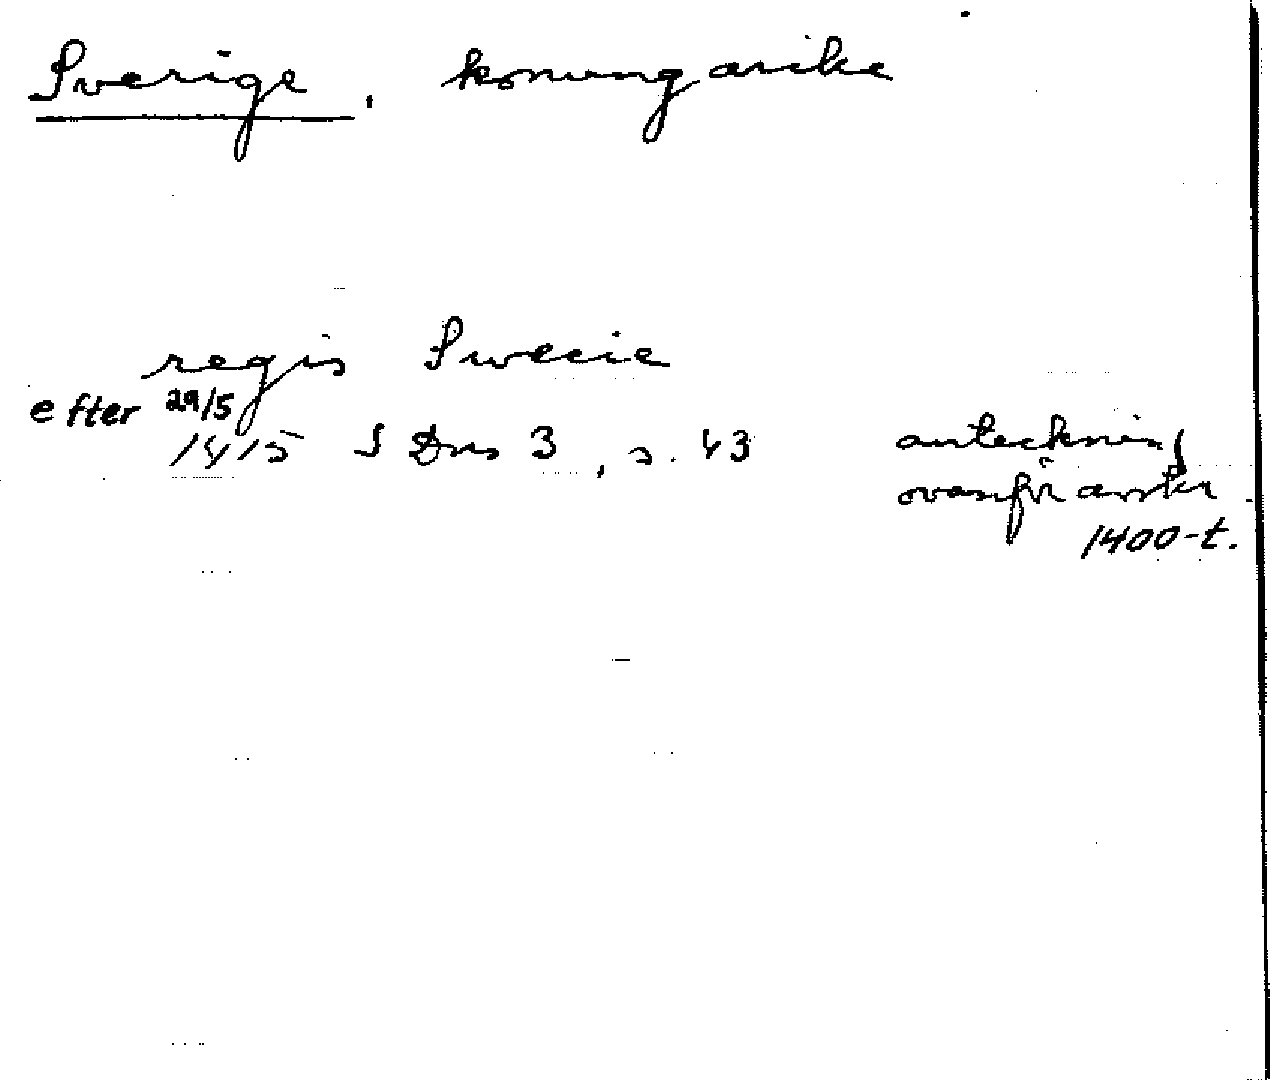 Sverige, konungarike
regis Swecie
efter 29/5
1415 SDns 3, s. 43 anteckning
ovanför avskr
1400-t.